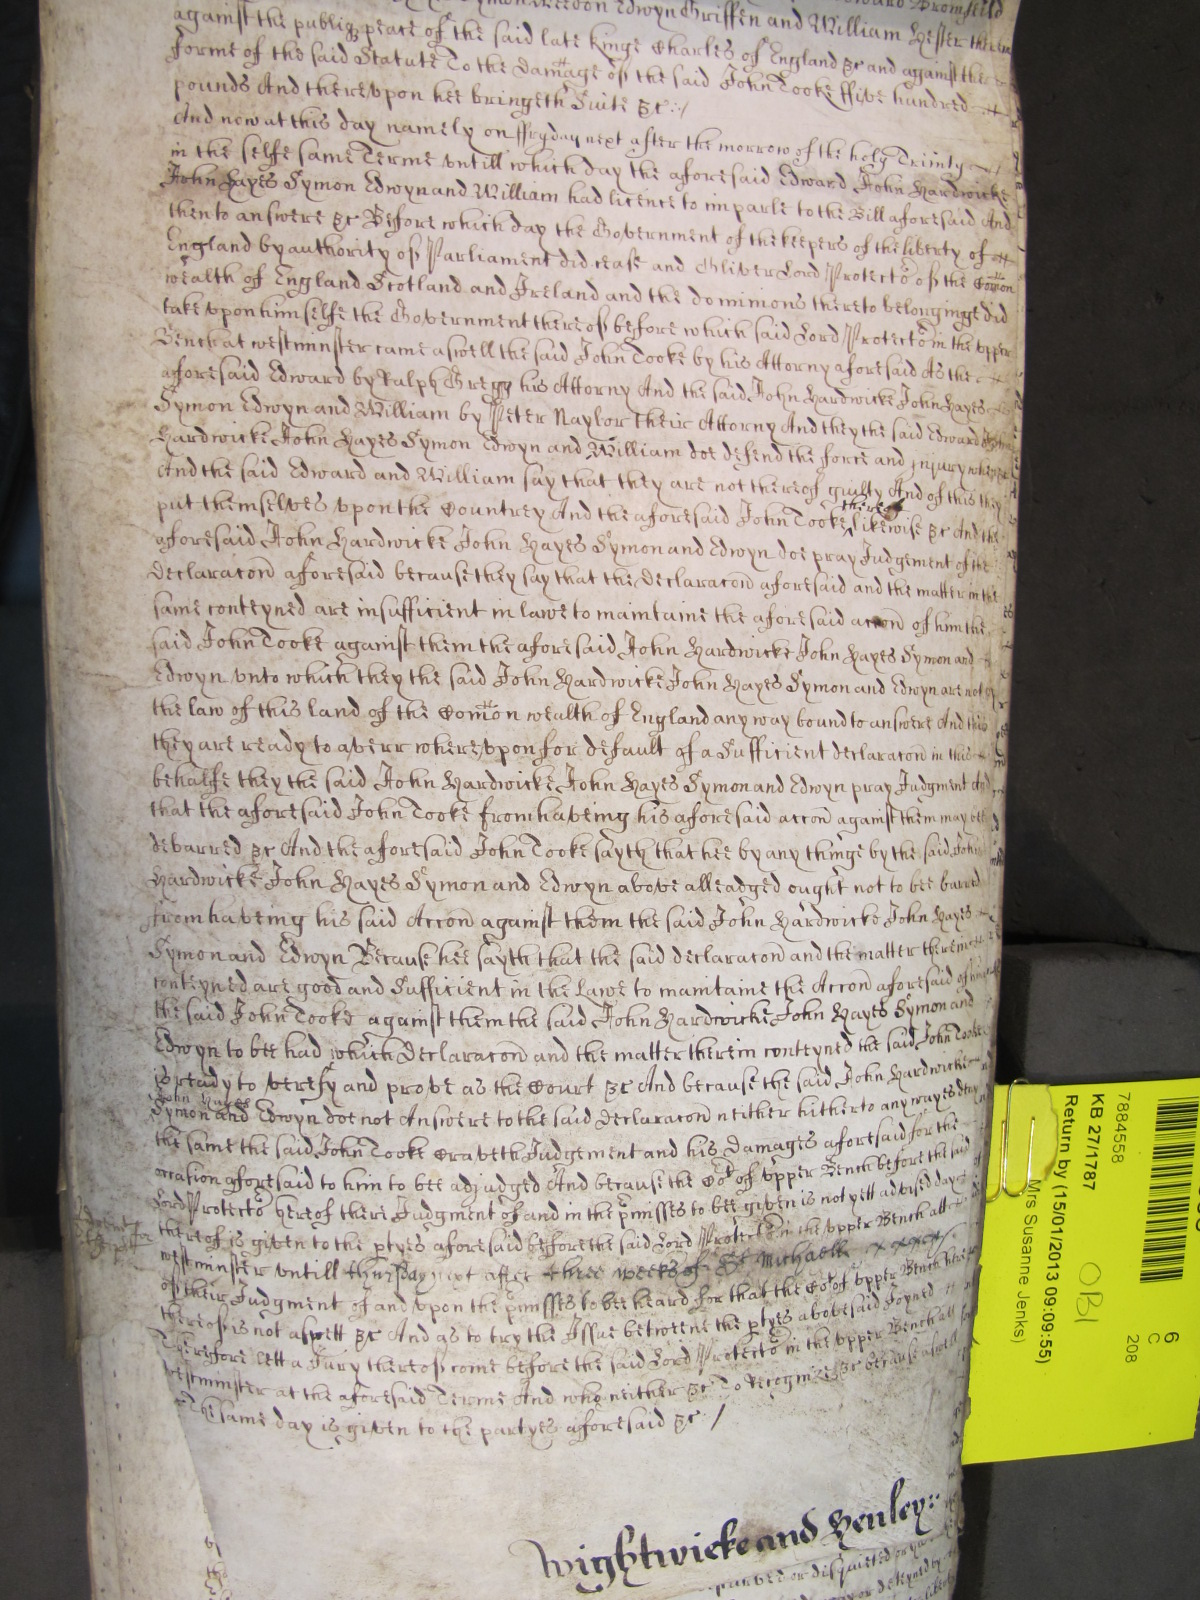 Symon Heedon Edwyn Griffen and William Hester therein
against the publiq peace of the said late kinge Charles of England &c and against the
forme of the said Statute To the damage of the said John Tooke ffive hundred
pounds And therevpon hee bringeth Suite &c ./
And now at this day namely on ffryday next after the morrow of the holy Trinity
in the selfe same Terme vntill which day the aforesaid Edward John Hardwicke
John Hayes Symon Edwyn and William had licence to imparle to the Bill aforesaid And
then to answere &c Before which day the Government of the keepers of the liberty of
England by authority of Parliament did cease and Oliver Lord Protector of the Comon
wealth of England Scotland and Ireland and the dominions thereto belonginge did
take vpon himselfe the Government thereof before which said Lord Protector in the vpper
Bench at westminster came aswell the said John Tooke by his Attorny aforesaid As the
aforesaid Edward by Ralph Gregg his Attorny And the said John Hardwicke John Hayes
Symon Edwyn and William by Peter Naylor their Attorny And they the said Edward John
Hardwicke John Hayes Symon Edwyn and William doe defend the force and injury when &c
And the said Edward and William say that they are not thereof guilty And of this they
put themselves vpon the Countrey And the aforesaid John Tooke thereof likewise &c And the
aforesaid John Hardwicke John Hayes Symon and Edwyn doe pray Judgement of the
declaracon aforesaid because they say that the declaracon aforesaid and the matter in the
same conteyned are insufficient in lawe to maintaine the aforesaid accon of him the
said John Tooke against them the aforesaid John Hardwicke John Hayes Symon and
Edwyn vnto which they the said John Hardwicke John Hayes Symon and Edwyn are not by
the law of this land of the Comon wealth of England any way bound to answere And this
they are ready to averr wherevpon for default of a sufficient declaracon in this
behalfe they the said John Hardwicke John Hayes Symon and Edwyn pray Judgment And
that the aforesaid John Tooke from haveing his aforesaid accon against them may bee
debarred &c And the aforesaid John Tooke sayth that hee by any thinge by the said John
Hardwicke John Hayes Symon and Edwyn above alleadged ought not to bee barred
from haveing his said Accon against them the said John Hardwicke John Hayes
Symon and Edwyn Because hee sayth that the said declaracon and the matter therein
conteyned are good and sufficient in the Lawe to maintaine the Accon aforesaid of him
the said John Tooke against them the said John Hardwicke John Hayes Symon and
Edwyn to bee had which declaracon and the matter therein conteyned the said John Tooke
is ready to verefy and prove as the Court &c And because the said John Hardwicke
John Hayes
Symon and Edwyn doe not Answere to the said declaracon neither hitherto any wayes deny
the same the said John Tooke craveth Judgement and his damages aforesaid for the
occasion aforesaid to him to bee adjudged And because the Cort of vpper Bench before the said
Lord Protector hereof there Judgment of and in the pmisses to bee given is not yett advised day
thereof is given to the ptyes aforesaid before the said Lord Protector in the vpper Bench att
westminster vntill thursday next after three weekes of St Michaell
of their Judgment of and vpon the pmisses to bee heard for that the Cort of vpper Bench here
thereof is not as yett &c And as to try the Issue betweene the ptyes abovesaid Joyned
Therefore lett a Jury thereof come before the said Lord Protector in the vpper Bench att
westminster at the aforesaid Terme And who neither &c To Recognize &c because aswell
The same day is given to the partyes aforesaid &c /
Wightwicke and Henley
7884558
KB 27/1787
Return by (15/01/2013 09:09:55)
Mrs Susanne Jenks)
OBI
6
C
208